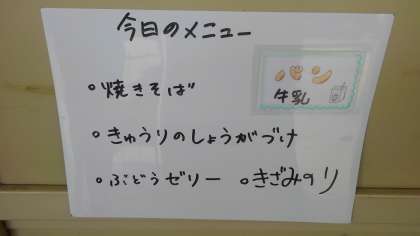 今日のメニュー
パン
牛乳
○焼きそば
○きゅうりのしょうがづけ
○ぶどうゼリー ○きざみのり